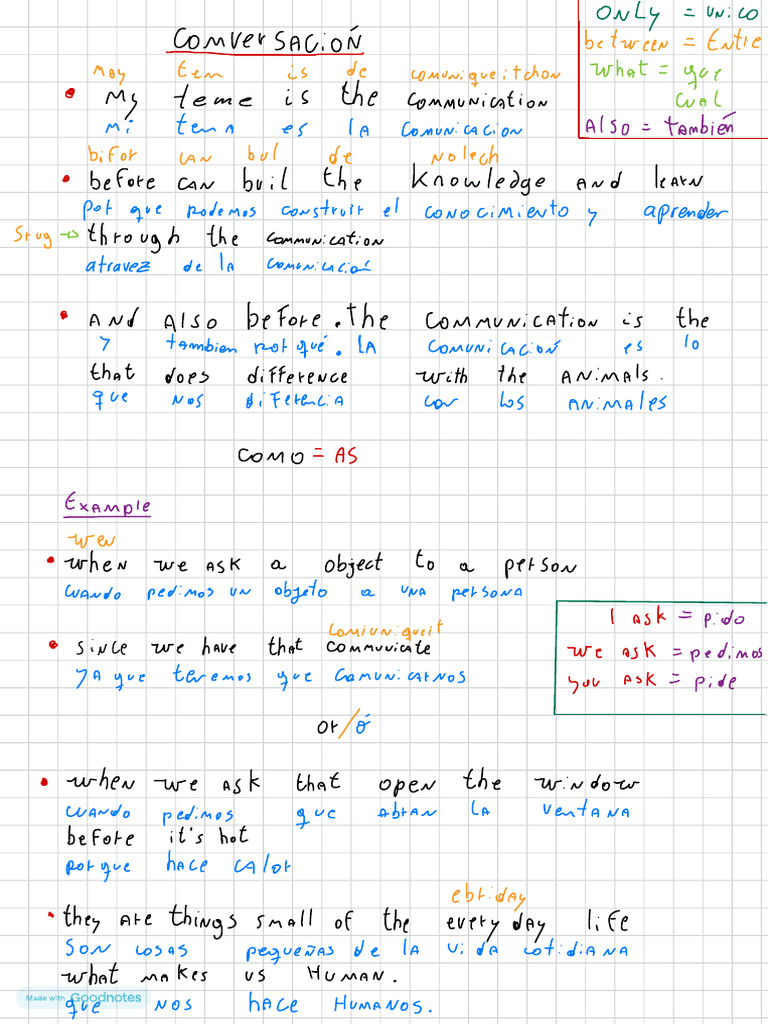 Conversación
only = unico
between = Entre
what = que
cual
Also = también
May tem is de comuniqueitchon
My teme is the communication
mi tema es la comunicacion
bifor can bul de nolech
before can buil the knowledge and learn
por que podemos construir el conocimiento y aprender
Srug → through the communication
atravez de la comunicación
And Also before. the communication is the
y tambien porqué. la comunicación es lo
that does difference with the animals.
que nos diferencia con los animales
como = As
Example
wen
when we ask a object to a person
cuando pedimos un objeto a una persona
I ask = pido
we ask = pedimos
you ask = pide
comiuniqueit
since we have that communicate
ya que tenemos que comunicarnos
or/ó
when we ask that open the window
cuando pedimos que abran la ventana
before it's hot
porque hace calor
ebriday
they are things small of the every day life
son cosas pequeñas de la vida cotidiana
what makes us human.
que nos hace humanos.
Made with Goodnotes